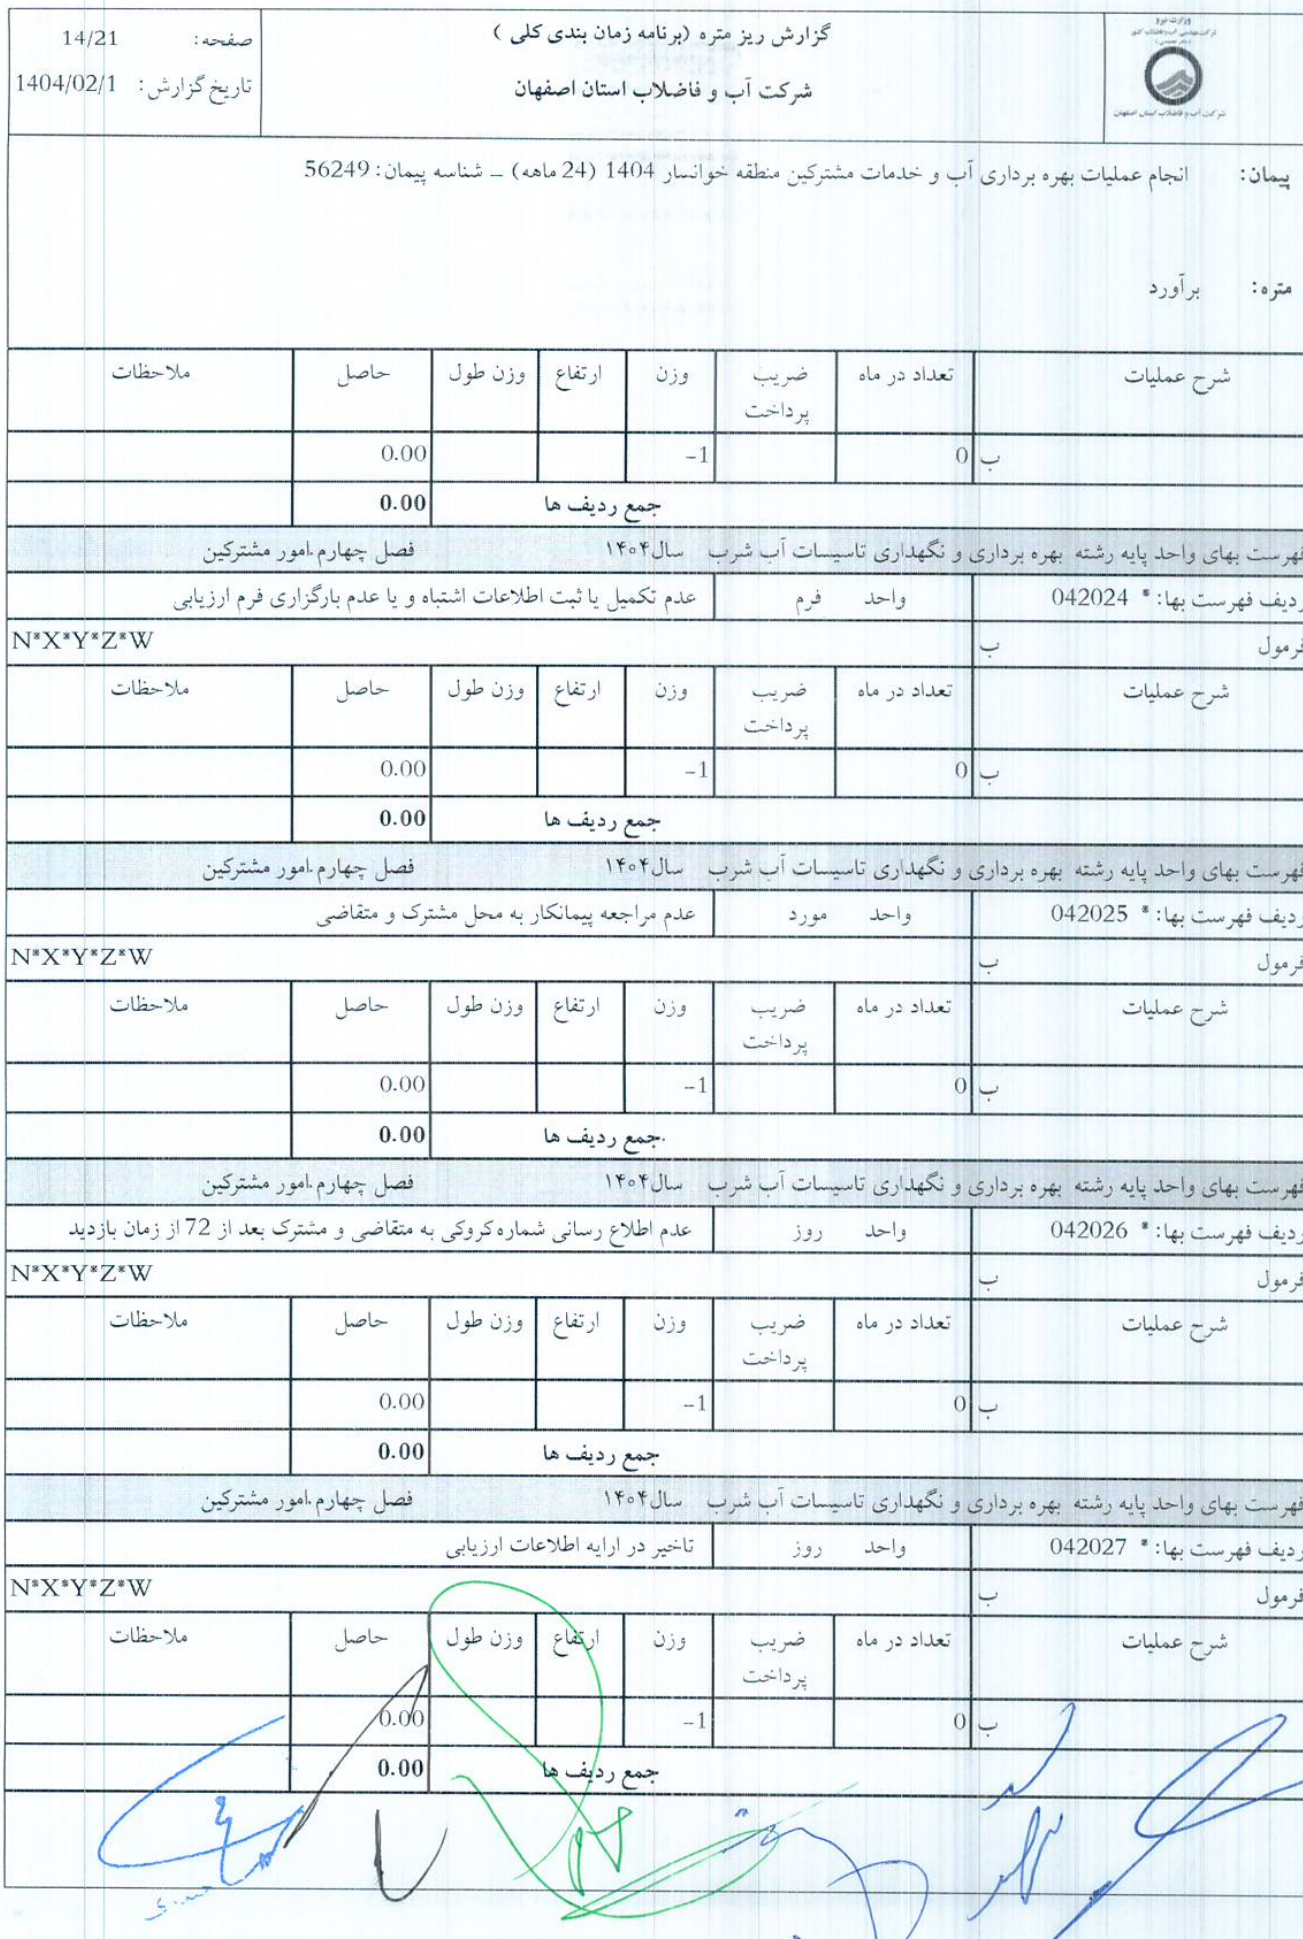 گزارش ریز متره (برنامه زمان بندی کلی )
شرکت آب و فاضلاب استان اصفهان
صفحه: 14/21
تاریخ گزارش: 1404/02/1
وزارت نیرو
شرکت آب و فاضلاب استان اصفهان
پیمان: انجام عملیات بهره برداری آب و خدمات مشترکین منطقه خوانسار 1404 (24 ماهه) – شناسه پیمان: 56249
متره: برآورد
شرح عملیات تعداد در ماه ضریب پرداخت وزن ارتفاع وزن طول حاصل ملاحظات
ب 0 -1 0.00
جمع ردیف ها 0.00
فهرست بهای واحد پایه رشته بهره برداری و نگهداری تاسیسات آب شرب سال۱۴۰۴ فصل چهارم.امور مشترکین
ردیف فهرست بها: * 042024 واحد فرم عدم تکمیل یا ثبت اطلاعات اشتباه و یا عدم بارگزاری فرم ارزیابی
فرمول ب N*X*Y*Z*W
شرح عملیات تعداد در ماه ضریب پرداخت وزن ارتفاع وزن طول حاصل ملاحظات
ب 0 -1 0.00
جمع ردیف ها 0.00
فهرست بهای واحد پایه رشته بهره برداری و نگهداری تاسیسات آب شرب سال۱۴۰۴ فصل چهارم.امور مشترکین
ردیف فهرست بها: * 042025 واحد مورد عدم مراجعه پیمانکار به محل مشترک و متقاضی
فرمول ب N*X*Y*Z*W
شرح عملیات تعداد در ماه ضریب پرداخت وزن ارتفاع وزن طول حاصل ملاحظات
ب 0 -1 0.00
جمع ردیف ها 0.00
فهرست بهای واحد پایه رشته بهره برداری و نگهداری تاسیسات آب شرب سال۱۴۰۴ فصل چهارم.امور مشترکین
ردیف فهرست بها: * 042026 واحد روز عدم اطلاع رسانی شماره کروکی به متقاضی و مشترک بعد از 72 از زمان بازدید
فرمول ب N*X*Y*Z*W
شرح عملیات تعداد در ماه ضریب پرداخت وزن ارتفاع وزن طول حاصل ملاحظات
ب 0 -1 0.00
جمع ردیف ها 0.00
فهرست بهای واحد پایه رشته بهره برداری و نگهداری تاسیسات آب شرب سال۱۴۰۴ فصل چهارم.امور مشترکین
ردیف فهرست بها: * 042027 واحد روز تاخیر در ارایه اطلاعات ارزیابی
فرمول ب N*X*Y*Z*W
شرح عملیات تعداد در ماه ضریب پرداخت وزن ارتفاع وزن طول حاصل ملاحظات
ب 0 -1 0.00
جمع ردیف ها 0.00